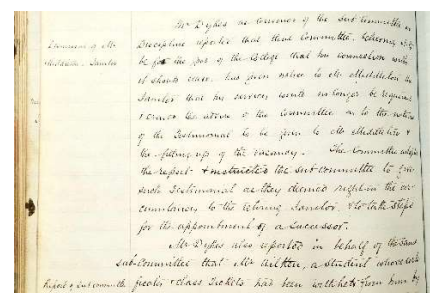 Mr Dykes as Convener of the Sub Committee on
Dismission of Mr
Discipline reported that that Committee, believing it to
Middleton, Janitor
be for the good of the College that his connection with
it should cease, had given notice to Mr Middleton the
Janitor that his services would no longer be required
& craved the advice of the Committee as to the nature
of the Testimonial to be given to Mr Middleton &
the filling up of the vacancy. The Committee adopted
the report & instructed the sub-committee to give
such Testimonial as they deemed right in the cir-
cumstances to the retiring Janitor & to take steps
for the appointment of a successor.
Mr Dykes also reported in behalf of the same
sub-Committee that Mr Aitken, a student whose
Report of Sub committee
& class Tickets had been withheld from him by